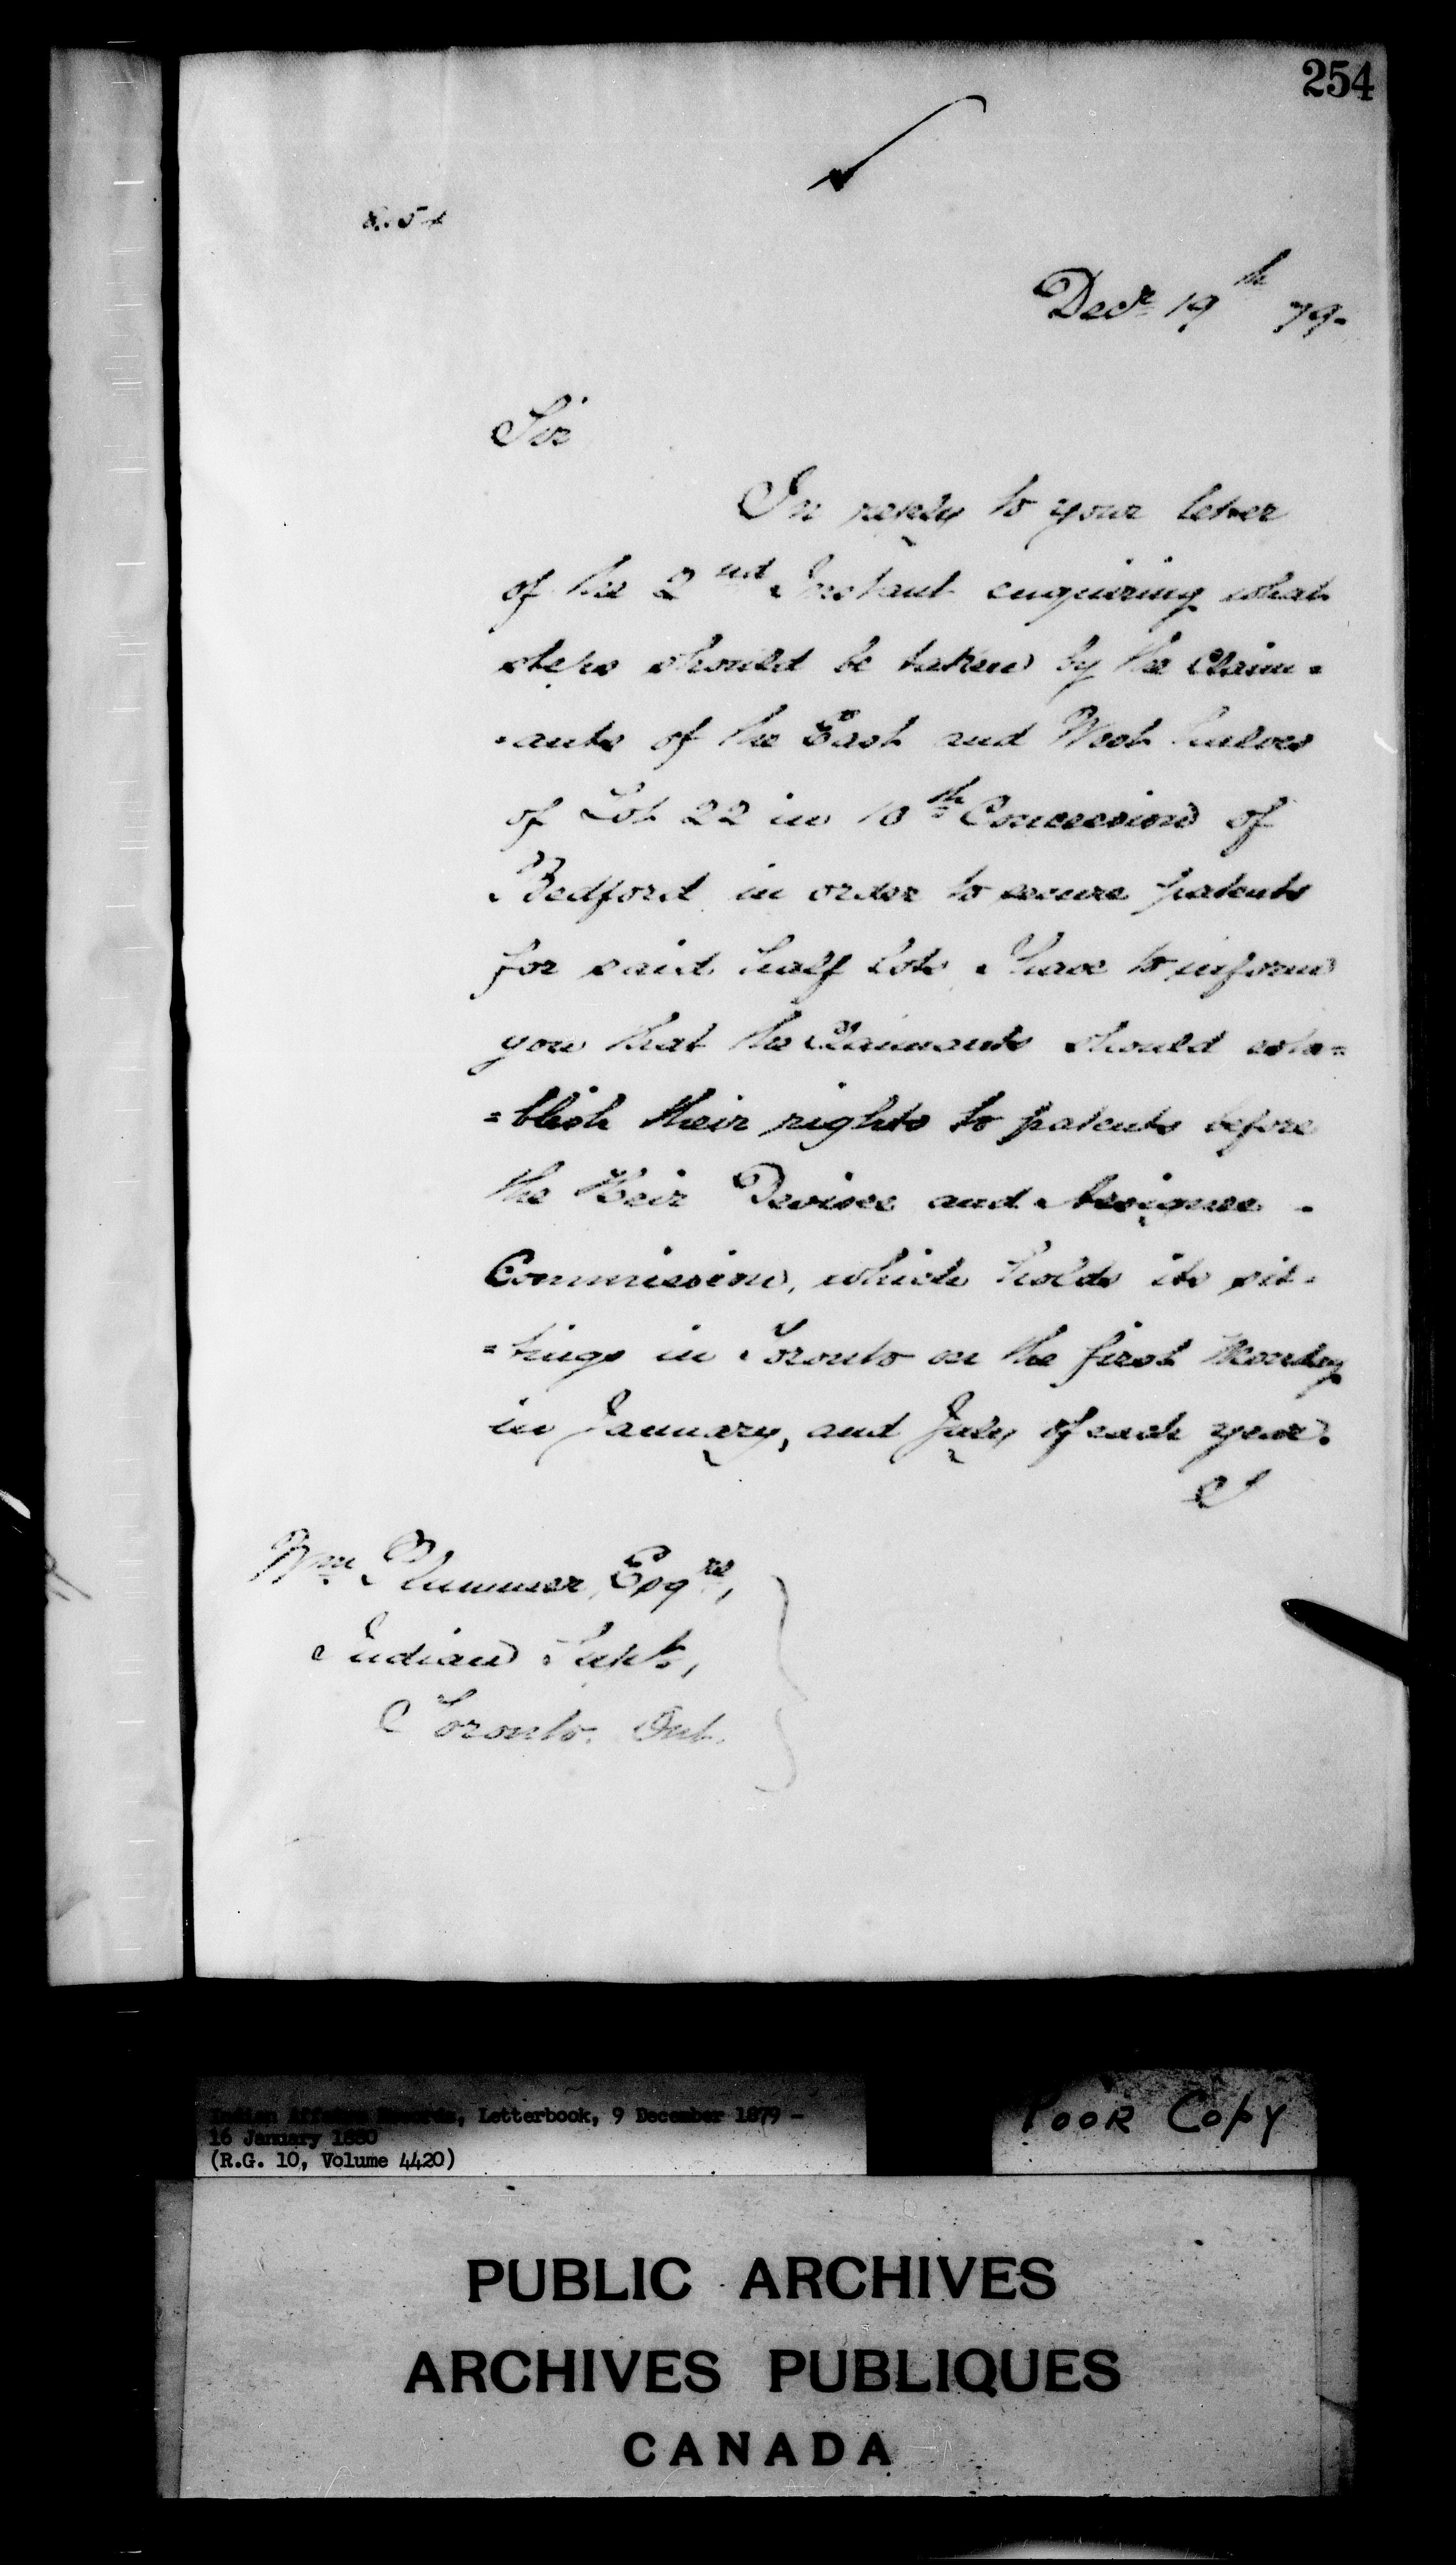 254
Decr 19th 79-
Sir
In reply to your letter
of the 2nd Instant enquiring what
steps should be taken by the Claim-
-ants of the East and West halves
of Lot 22 in 10th Concession of
Bedford in order to secure patents
for said half lots I have to inform
you that the Claimants should esta=
=blish their rights to patents before
the Heir Devisee and Assignee -
Commission, which holds its sit-
=tings in Toronto on the first Monday
in January, and July of each year.
Wm Plummer, Esqre,
Indian Supt,
Toronto. Ont.
Indian Affairs Records, Letterbook, 9 December 1879 -
16 January 1880
(R.G. 10, Volume 4420)
POOR COPY
PUBLIC ARCHIVES
ARCHIVES PUBLIQUES
CANADA